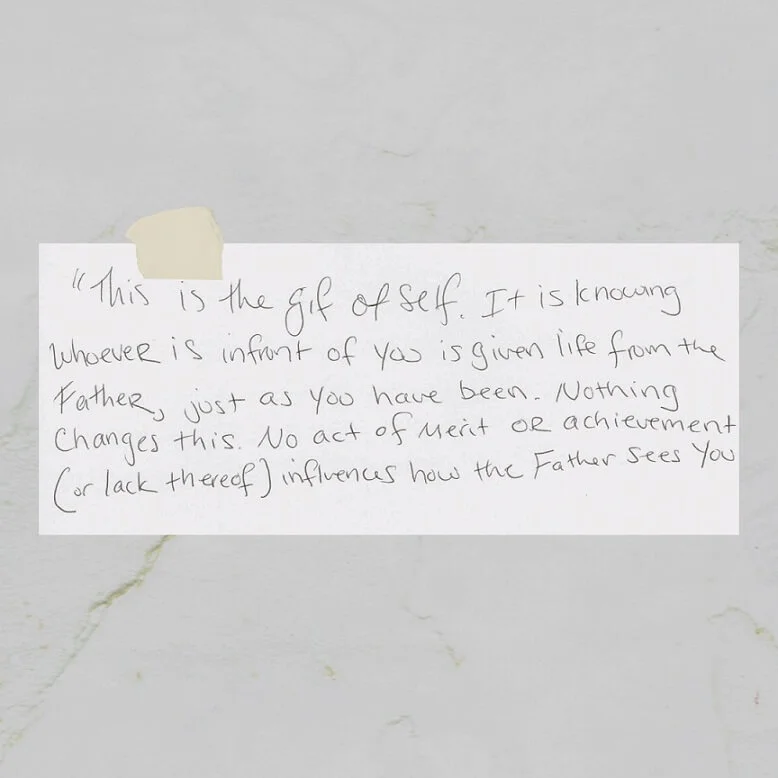 "This is the gif of self. It is knowing
whoever is infront of you is given life from the
Father, just as you have been. Nothing
changes this. No act of merit or achievement
(or lack thereof) influences how the Father sees you